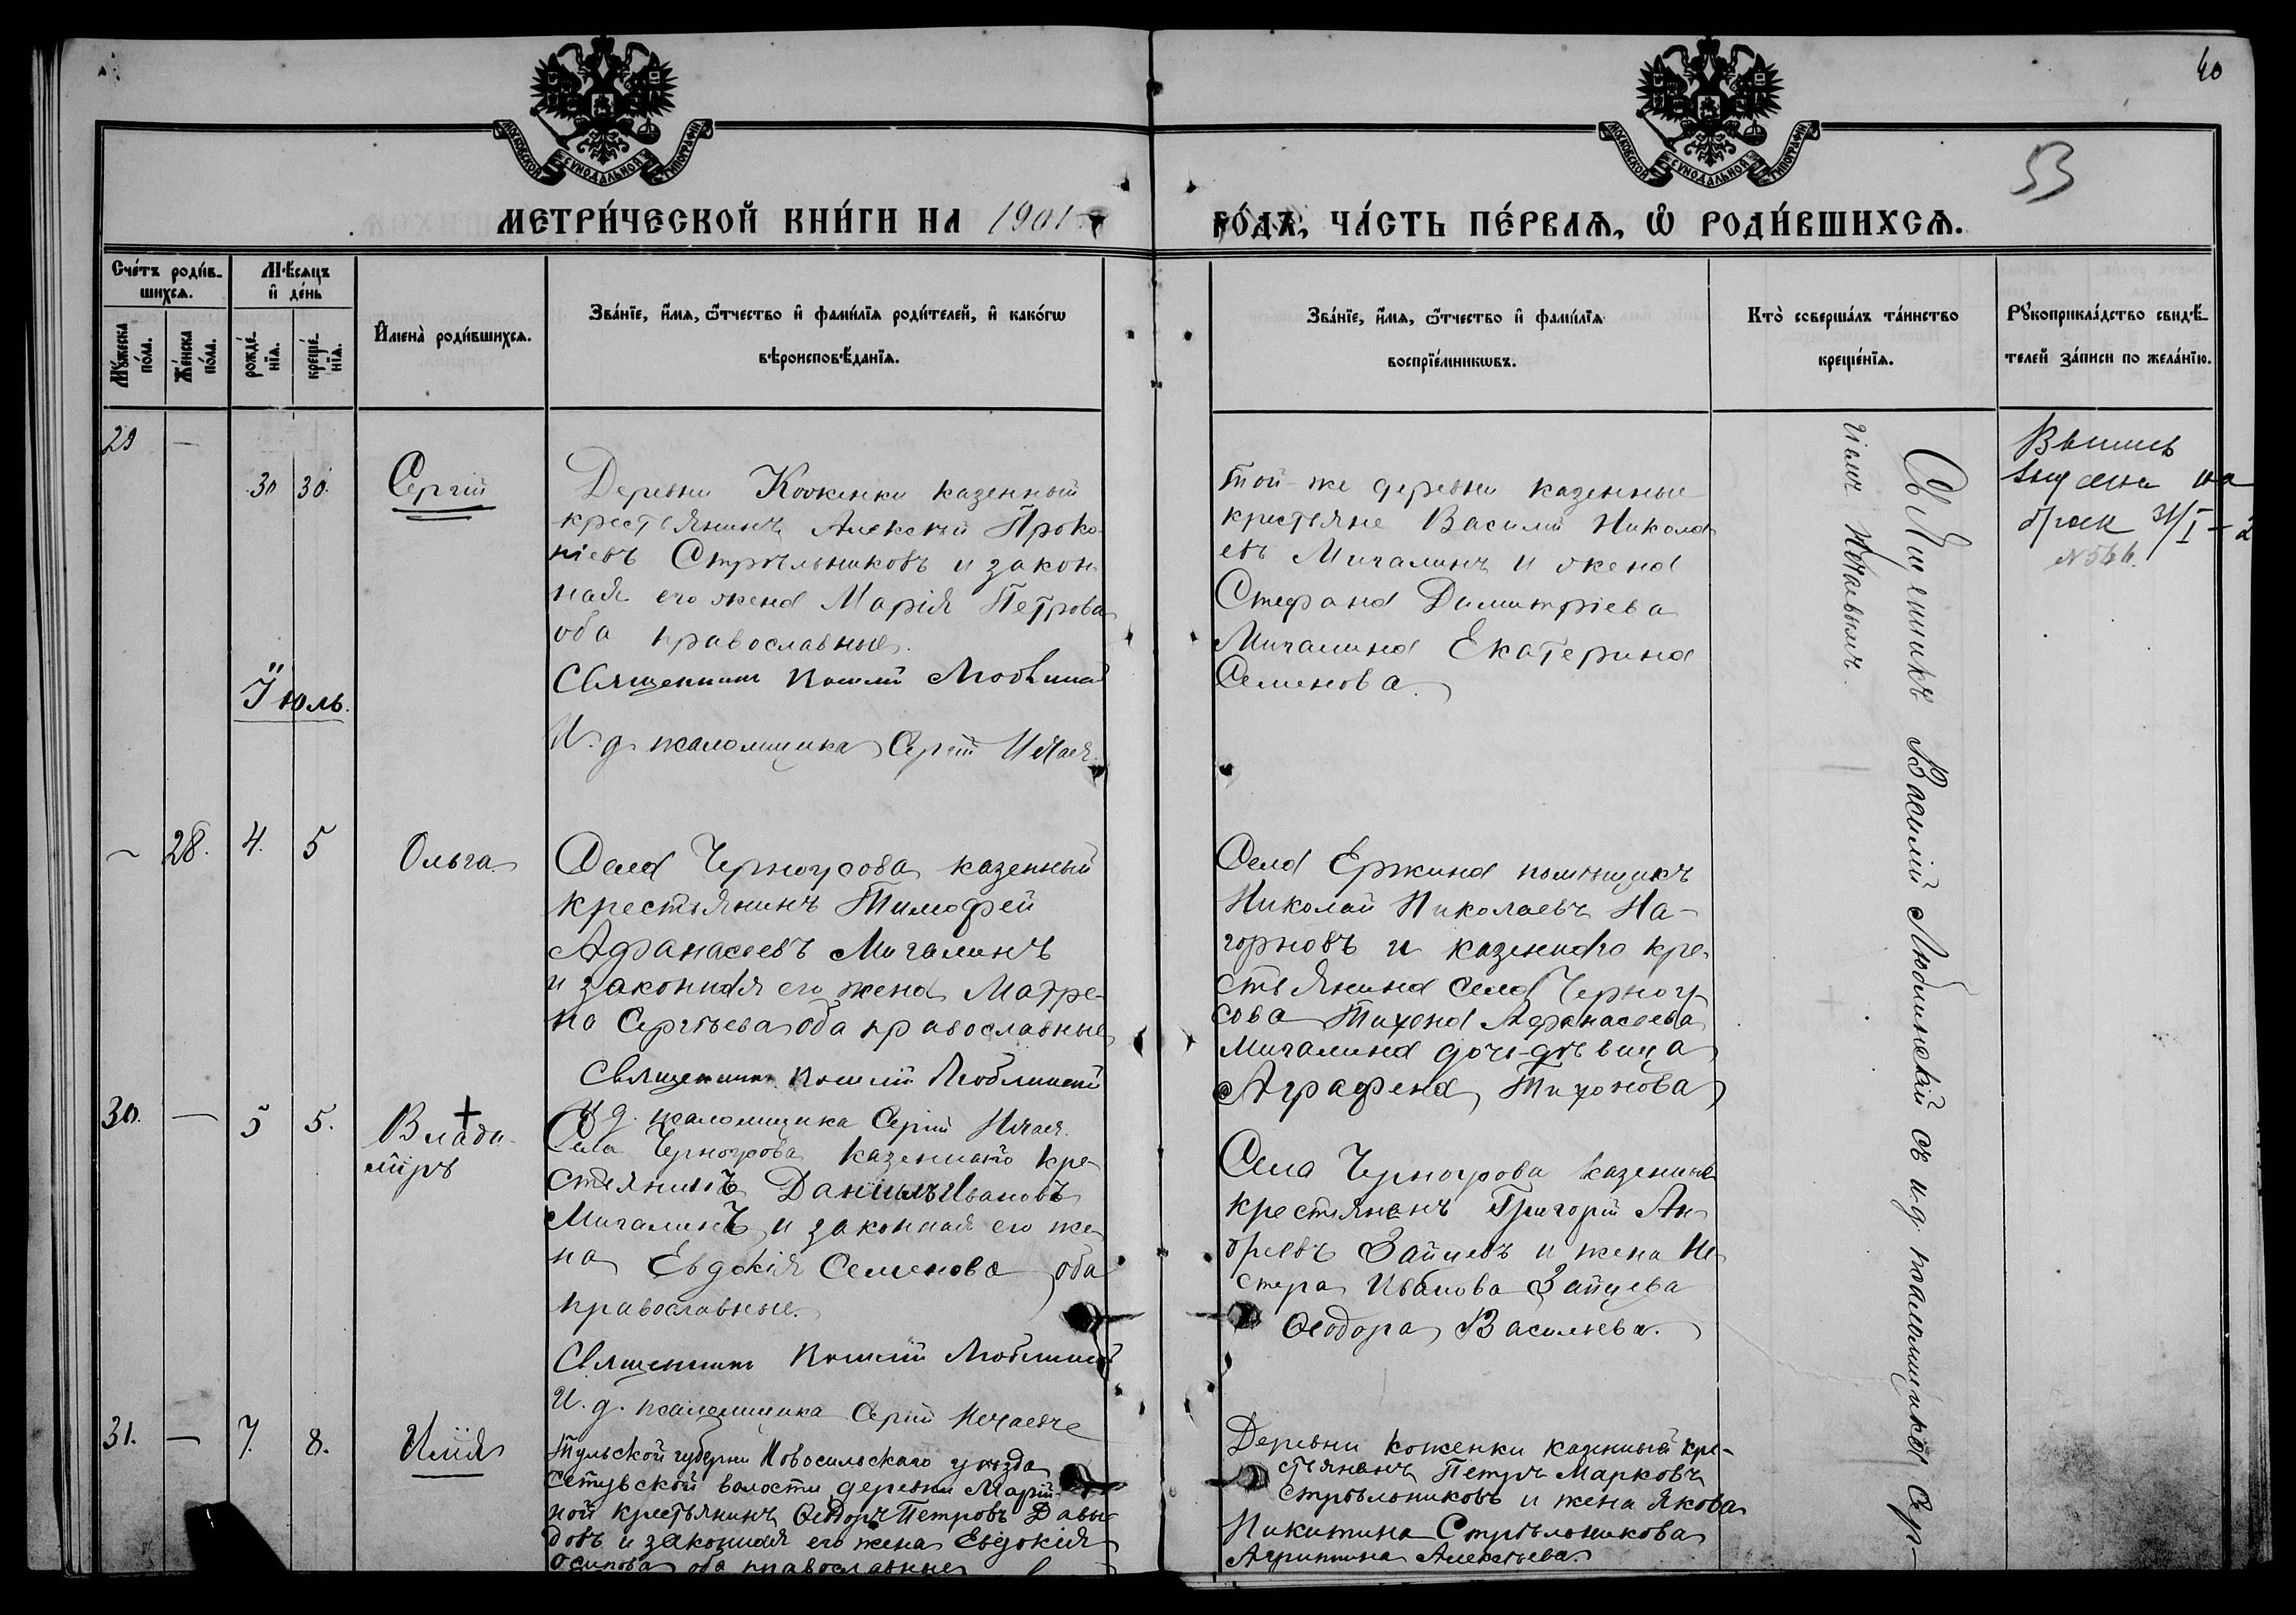 40
53
МОСКОВСКОЙ СѴНОДАЛЬНОЙ ТИПОГРАФІИ
МОСКОВСКОЙ СѴНОДАЛЬНОЙ ТИПОГРАФІИ
МЕТРИ́ЧЕСКОЙ КНИ́ГИ НА 1901
ГО́ДЪ, ЧА́СТЬ ПЕ́РВАѦ, Ѡ҆ РОДИ́ВШИХСѦ.
Сче́тъ роди́в-
шихсѧ.
Мꙋ́жеска по́ла.
Же́нска по́ла.
Мѣ́сѧцъ и҆ де́нь
рожде́-нїѧ.
креще́-нїѧ.
И҆мена̀ роди́вшихсѧ.
Зва́нїе, и҆́мѧ, ѻ҆́тчество и҆ фами́лїѧ роди́телей, и҆ како́гѡ
вѣроисповѣ́данїѧ.
Зва́нїе, и҆́мѧ, ѻ҆́тчество и҆ фами́лїѧ
воспрїе́мникѡвъ.
Кто̀ соверша́лъ та́инство
креще́нїѧ.
Рꙋкоприкла́дство свидѣ́-
телей за́писи по жела́нїю.
29 — 30 30. Сергій
Деревни Коженки казенный
крестьянинъ Алексѣй Проко-
піевъ Стрѣльниковъ и закон
ная его жена Марія Петрова
оба православные.
Священникъ Василій Люблинскій
И. д. псаломщика Сергій Нечаевъ
Той-же деревни казенные
крестьяне Василій Никола
евъ Мичалинъ и жена
Стефана Димитріева
Мичалина Екатерина
Семенова.
Выпись
выдана на
бракъ 31/I
№ 566.
Іюль.
— 28. 4. 5 Ольга
Села Черноусова казенный
крестьянинъ Тимофей
Афанасьевъ Мичалинъ
и законная его жена Матре-
на Сергѣева оба православные
Священникъ Василій Люблинскій
И. д. псаломщика Сергій Нечаевъ
Села Ержина помѣщикъ
Николай Николаевъ На-
горновъ и казеннаго кре-
стьянина села Черноу-
сова Тихона Афанасьева
Мичалина дочь-дѣвица
Аграфена Тихонова
30. — 5 5. Влади-
міръ
Села Черноусова казеннаго кре-
стьянинъ Даніилъ Ивановъ
Мичалинъ и законная его же
на Евдокія Семенова оба
православные.
Священникъ Василій Люблинскій
И. д. псаломщика Сергій Нечаевъ
Села Черноусова казенные
крестьянинъ Григорій Ан
дреевъ Зайцевъ и жена Не
стера Иванова Зайцева
Ѳеодора Васильева.
31. — 7 8. Илія
Тульской губерніи Новосильскаго уѣзда
волости деревни
ной крестьянинъ Ѳеодоръ Петровъ Давы
довъ и законная его жена Евдокія
Осипова оба православные
Деревни Коженки казенный кре-
стьянинъ Петръ Марковъ
Стрѣльниковъ и жена Якова
Никитина Стрѣльникова
Агрипина Алексѣева.
Священникъ Василій Люблинскій съ и. д. псаломщика Сер-
гіемъ Нечаевымъ